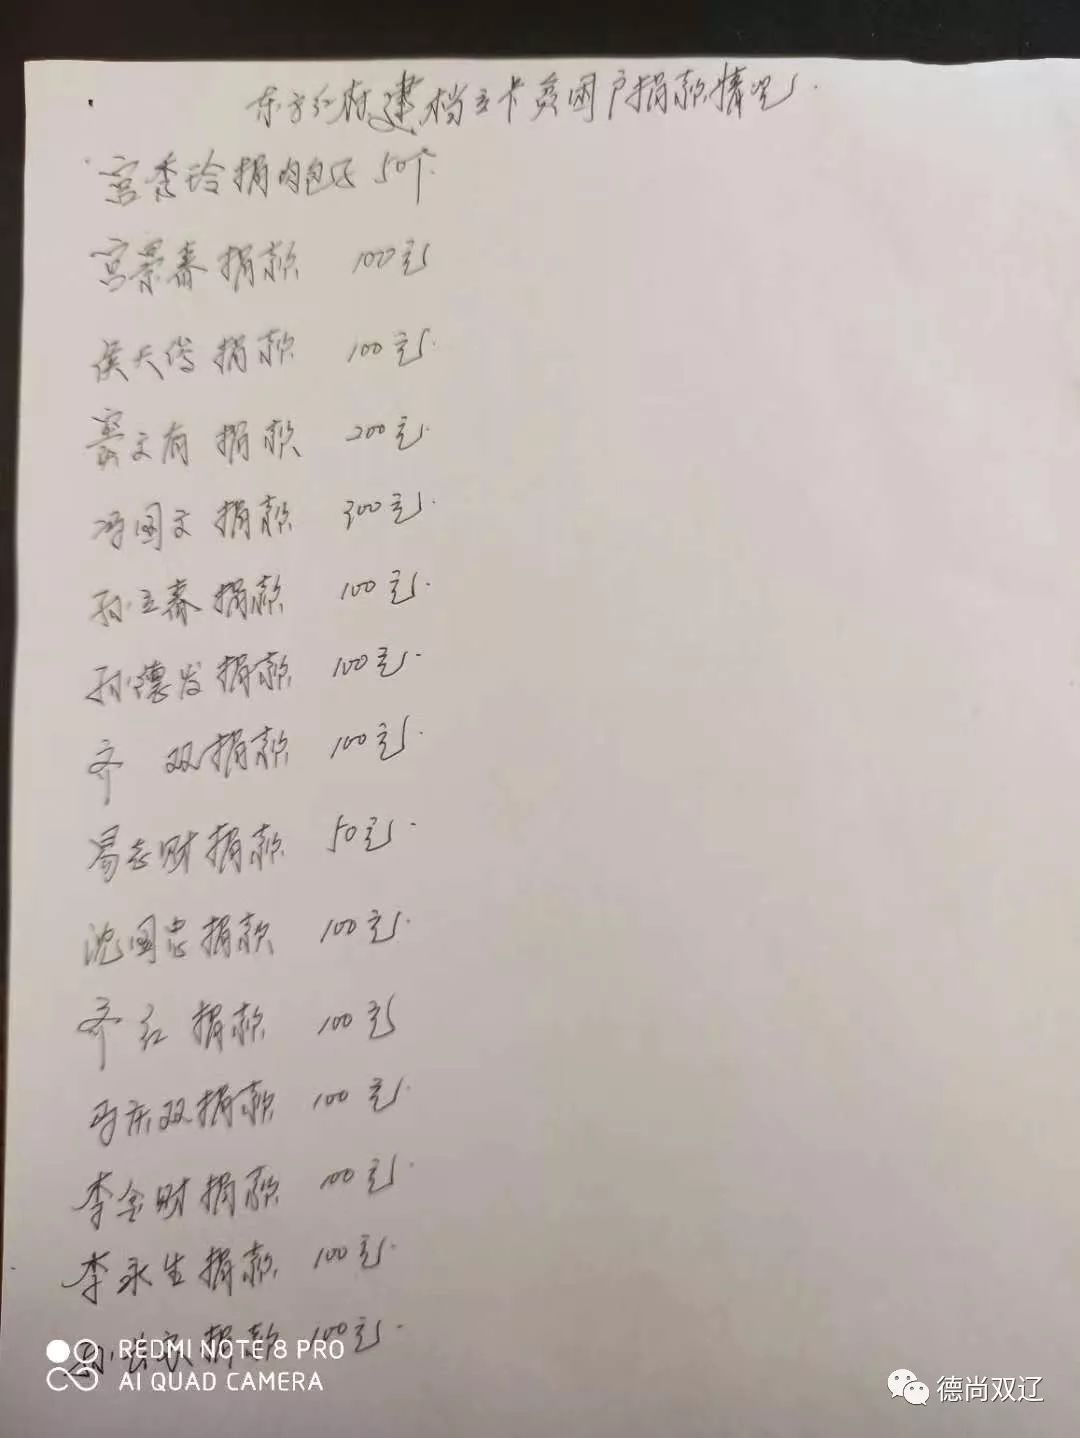 东方红村建档立卡贫困户捐款情况.
宫秀玲捐肉包子 50个.
宫景春捐款 100元
侯天俊捐款 100元.
窦文有捐款 200元.
冯国文捐款 300元.
孙立春捐款 100元.
孙德发捐款 100元.
齐 双捐款 100元.
易志财捐款 50元.
沈国忠捐款 100元.
齐红 捐款 100元
马庆双捐款 100元.
李金财捐款 100元.
李永生捐款 100元.
捐款 100元.
REDMI NOTE 8 PRO
AI QUAD CAMERA
德尚双辽